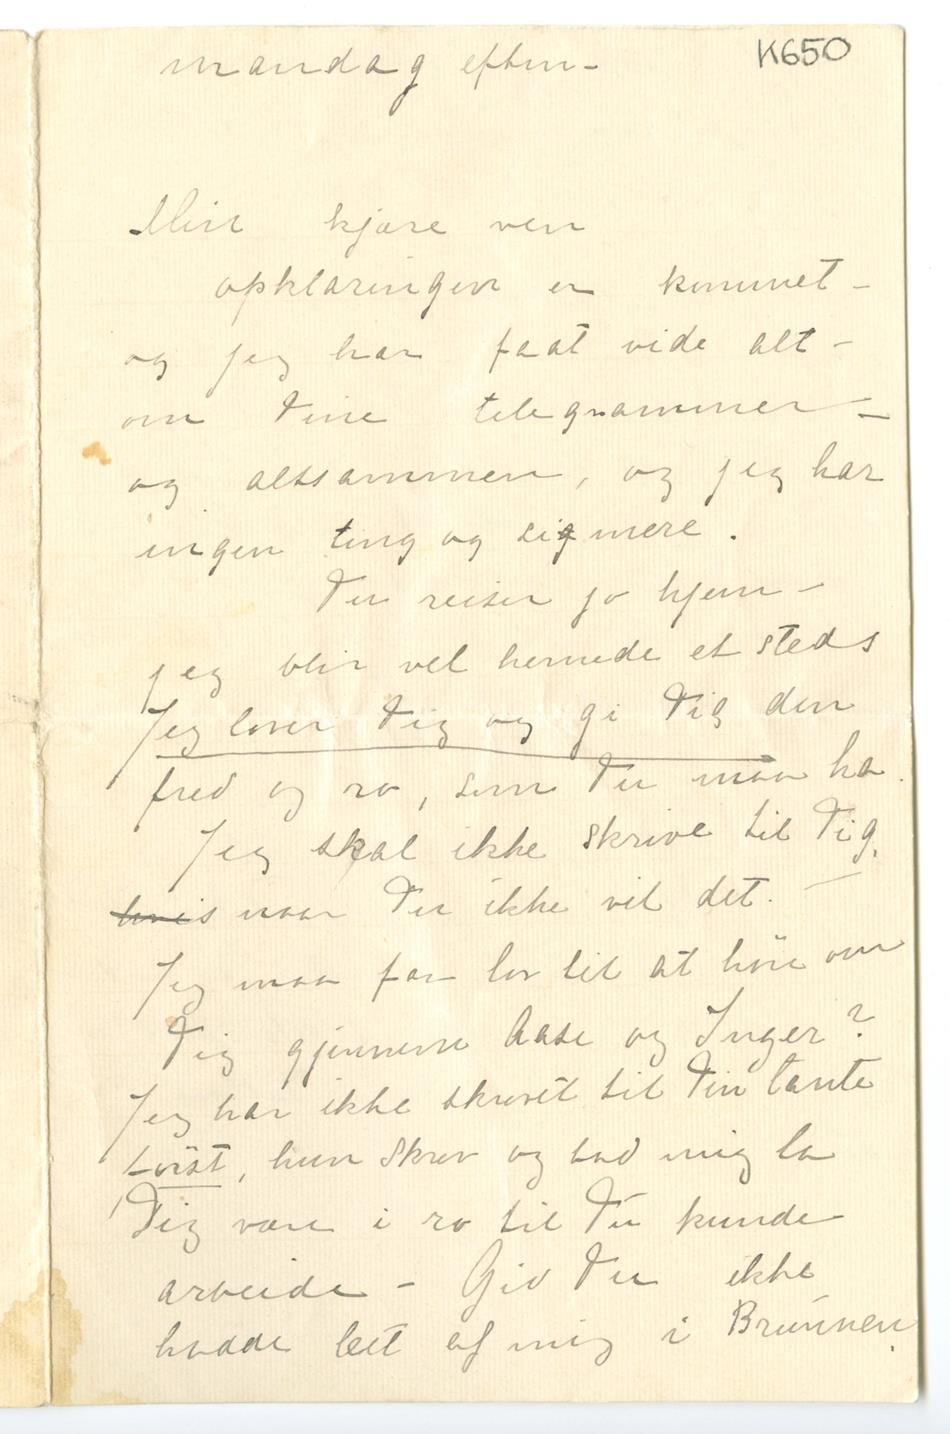 K650
mandag eftm-
Min kjære ven
opklaringen er kommet -
og jeg har faat vide alt -
om Dine telegrammer -
og altsammen, og jeg har
ingen ting og si mere.
Du reiser jo hjem -
jeg blir vel hernede et steds
Jeg lover Dig og gi Dig den
fred og ro, som Du maa ha.
Jeg skal ikke skrive til Dig,
hvis naar Du ikke vil det. -
Jeg maa faa lov til at høre om
Dig gjennem Aase og Inger?
Jeg har ikke skrevet til Din tante
først, hun skrev og bad mig la
Dig være i ro til Du kunde
arbeide - Gid Du ikke
hadde leet af mig i Brünnen.